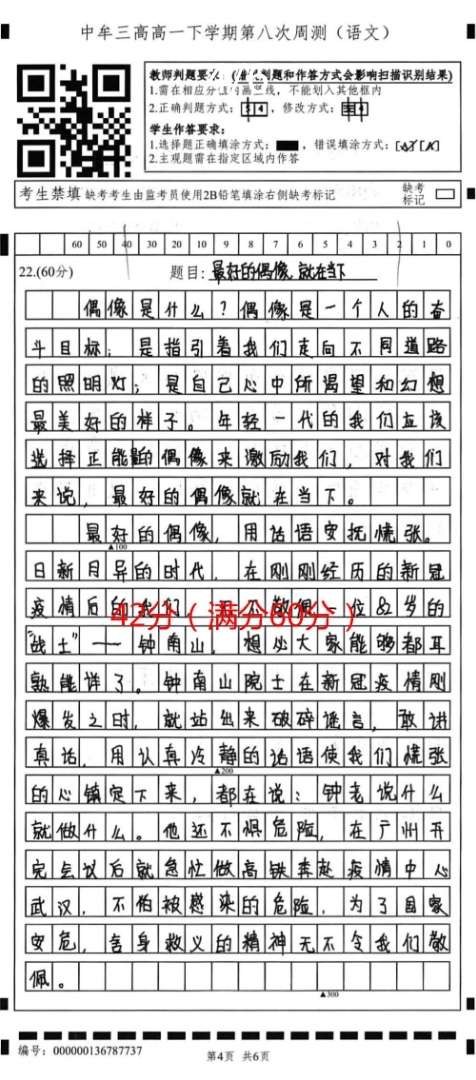 中牟三高高一下学期第八次周测（语文）
教师判题要
判题和作答方式会影响扫描识别结果)
1.需在相应分 线，不能划入其他框内
2.正确判题方式： 4 ，修改方式：
学生作答要求：
1.选择题正确填涂方式： ，错误填涂方式：
2.主观题需在指定区域内作答
考生禁填 缺考考生由监考员使用2B铅笔填涂右侧缺考标记
缺考标记
60 50 40 30 20 10 9 8 7 6 5 4 3 2 1 0
22.(60分) 题目: 最好的偶像就在当下
偶像是什么？偶像是一个人的奋
斗目标；是指引着我们走向不同道路
的照明灯；是自己心中所渴望和幻想
最美好的样子。年轻一代的我们应该
选择正能量的偶像来激励我们，对我们
来说，最好的偶像就在当下。
最好的偶像，用话语安抚慌张。
▲100
日新月异的时代，在刚刚经历的新冠
疫情后的我们 位82岁的
42分（满分60分）
“战士”——钟南山。想必大家能够都耳
熟能详了。钟南山院士在新冠疫情刚
爆发之时，就站出来破碎谣言，敢讲
真话，用认真冷静的话语使我们慌张
▲200
的心镇定下来，都在说：钟老说什么
就做什么。他还不惧危险，在广州开
完会议后就急忙做高铁奔赴疫情中心
武汉，不怕被感染的危险，为了国家
安危，舍身救义的精神无不令我们敬
佩。
▲300
编号：000000136787737
第4页 共6页